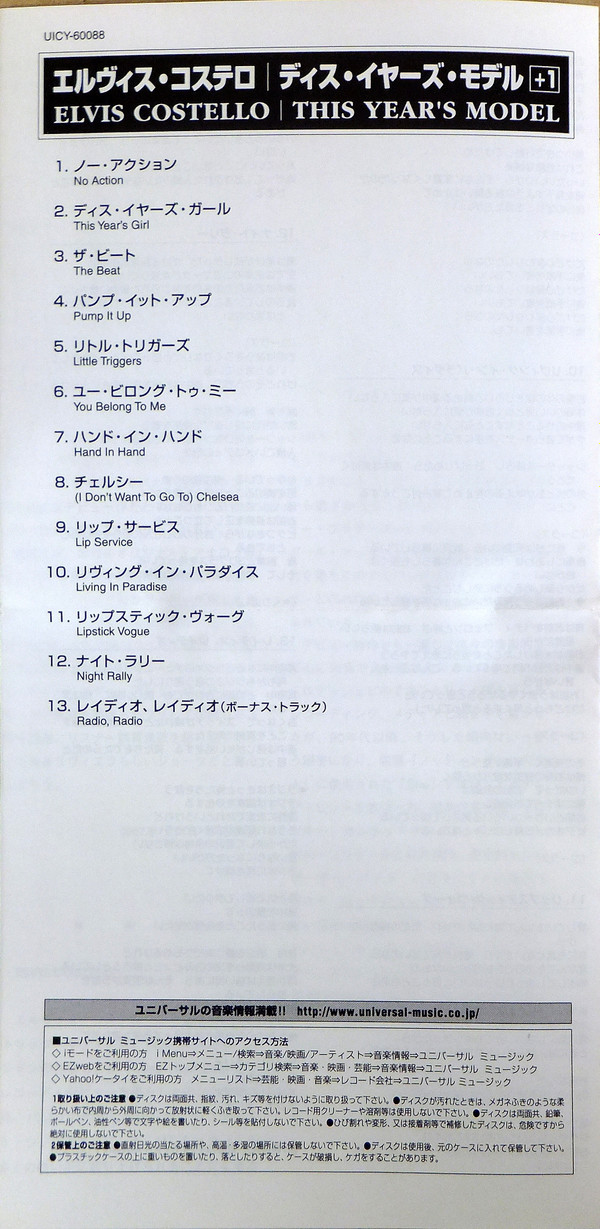 UICY-60088
エルヴィス・コステロ｜ディス・イヤーズ・モデル +1
ELVIS COSTELLO | THIS YEAR'S MODEL
1. ノー・アクション
No Action
2. ディス・イヤーズ・ガール
This Year's Girl
3. ザ・ビート
The Beat
4. パンプ・イット・アップ
Pump It Up
5. リトル・トリガーズ
Little Triggers
6. ユー・ビロング・トゥ・ミー
You Belong To Me
7. ハンド・イン・ハンド
Hand In Hand
8. チェルシー
(I Don't Want To Go To) Chelsea
9. リップ・サービス
Lip Service
10. リヴィング・イン・パラダイス
Living In Paradise
11. リップスティック・ヴォーグ
Lipstick Vogue
12. ナイト・ラリー
Night Rally
13. レイディオ、レイディオ(ボーナス・トラック)
Radio, Radio
ユニバーサルの音楽情報満載!! http://www.universal-music.co.jp/
■ユニバーサル ミュージック携帯サイトへのアクセス方法
◇ iモードをご利用の方 i Menu⇒メニュー/検索⇒音楽/映画/アーティスト⇒音楽情報⇒ユニバーサル ミュージック
◇ EZwebをご利用の方 EZトップメニュー⇒カテゴリ検索⇒音楽・映画・芸能⇒音楽情報⇒ユニバーサル ミュージック
◇ Yahoo!ケータイをご利用の方 メニューリスト⇒芸能・映画・音楽⇒レコード会社⇒ユニバーサル ミュージック
1取り扱い上のご注意 ●ディスクは両面共、指紋、汚れ、キズ等を付けないように取り扱って下さい。●ディスクが汚れたときは、メガネふきのような柔
らかい布で内周から外周に向かって放射状に軽くふき取って下さい。レコード用クリーナーや溶剤等は使用しないで下さい。●ディスクは両面共、鉛筆、
ボールペン、油性ペン等で文字や絵を書いたり、シール等を貼付しないで下さい。●ひび割れや変形、又は接着剤等で補修したディスクは、危険ですから
絶対に使用しないで下さい。
2保管上のご注意 ●直射日光の当たる場所や、高温・多湿の場所には保管しないで下さい。●ディスクは使用後、元のケースに入れて保管して下さい。
●プラスチックケースの上に重いものを置いたり、落としたりすると、ケースが破損し、ケガをすることがあります。